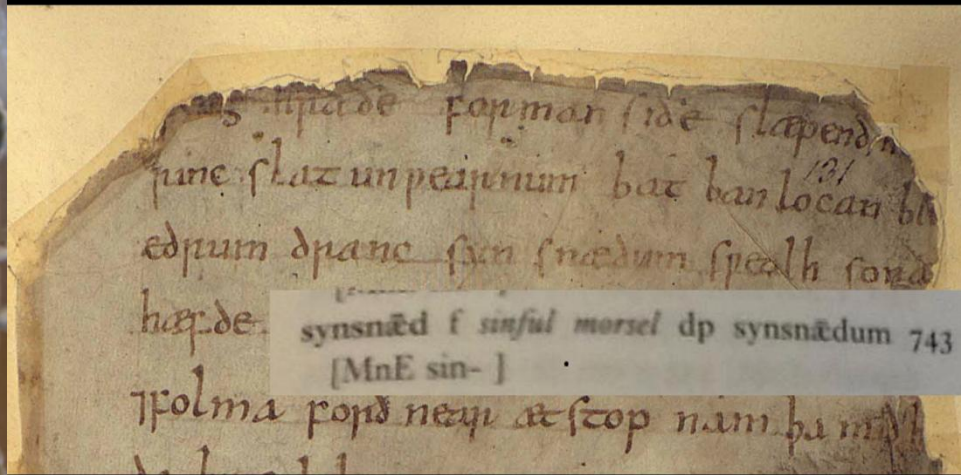 hraðe forman siðe slæpendn
131
rinc slat unƿearnum bat ban locan bl
edrum dranc syn snædum sƿealh sona
hæfde
synsnǣd f sinful morsel dp synsnǣdum 743
[MnE sin- ]
⁊folma forð near ætstop nam þa mid h